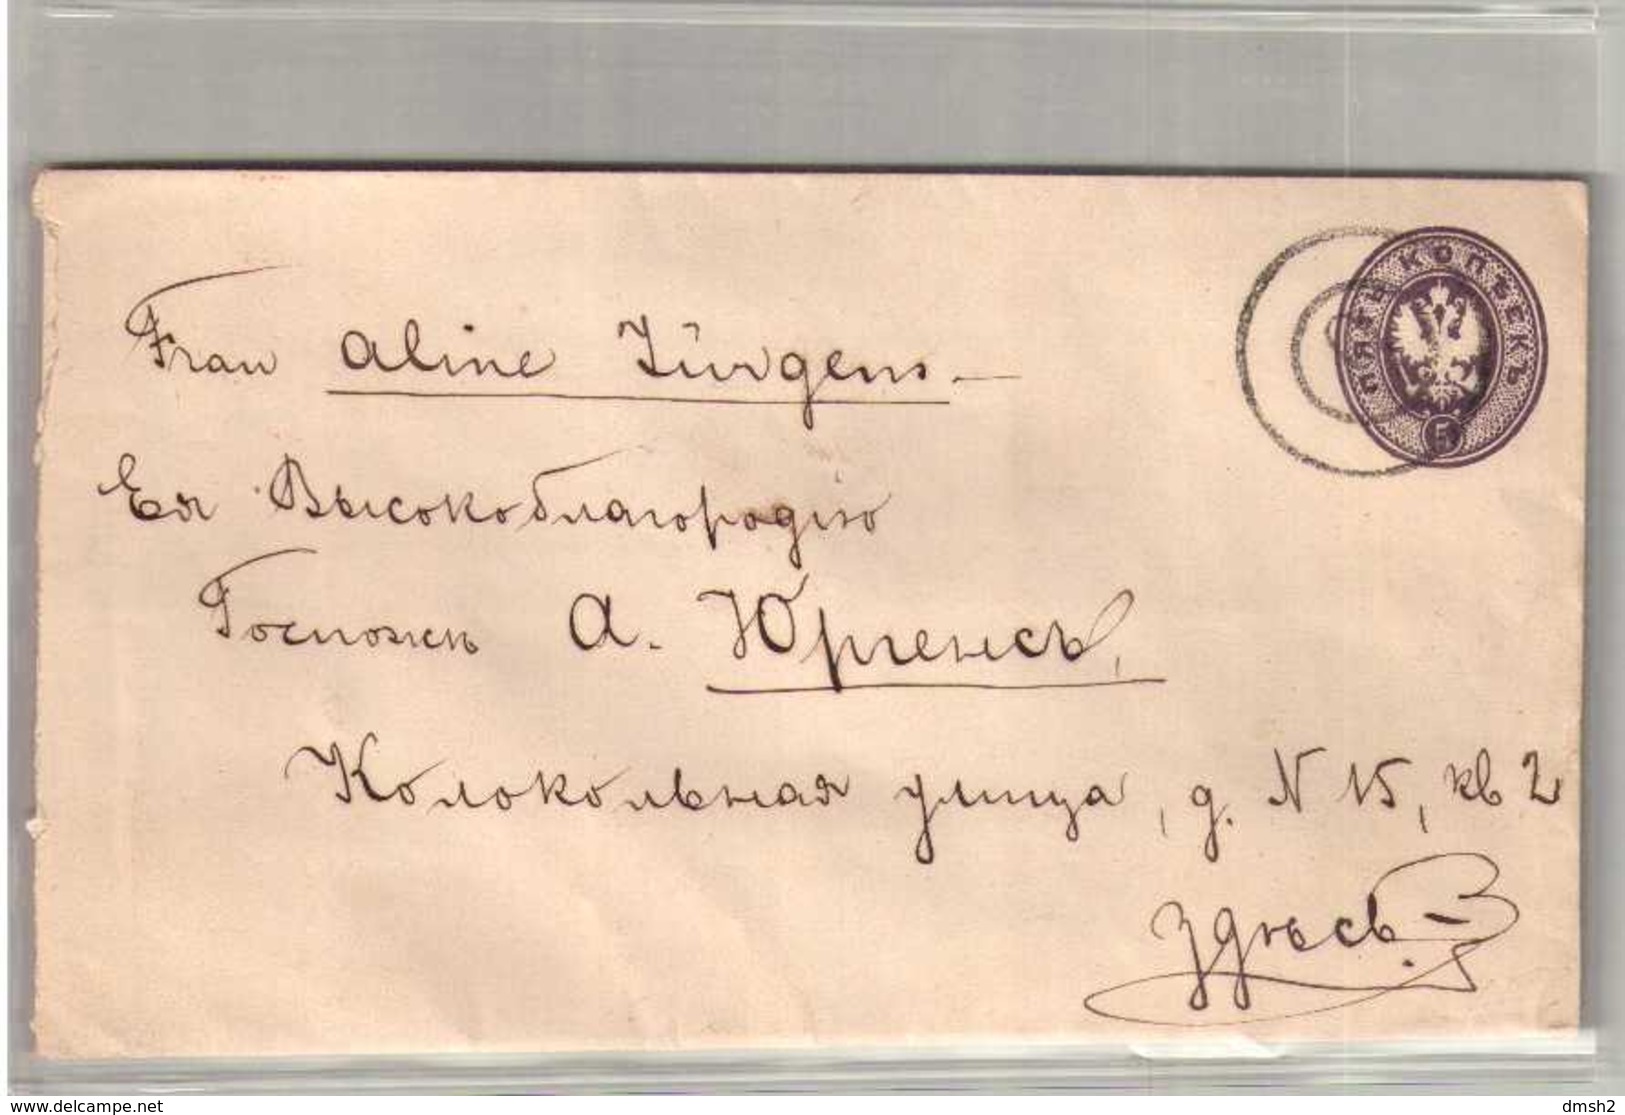 Frau Aline Jürgens.
ПЯТЬ КОПѢЕКЪ
5
Ея Высокоблагородію
Госпожѣ А. Юргенсъ,
Колокольная улица, д. N 15, кв 2
Здѣсь.
www.delcampe.net
dmsh2